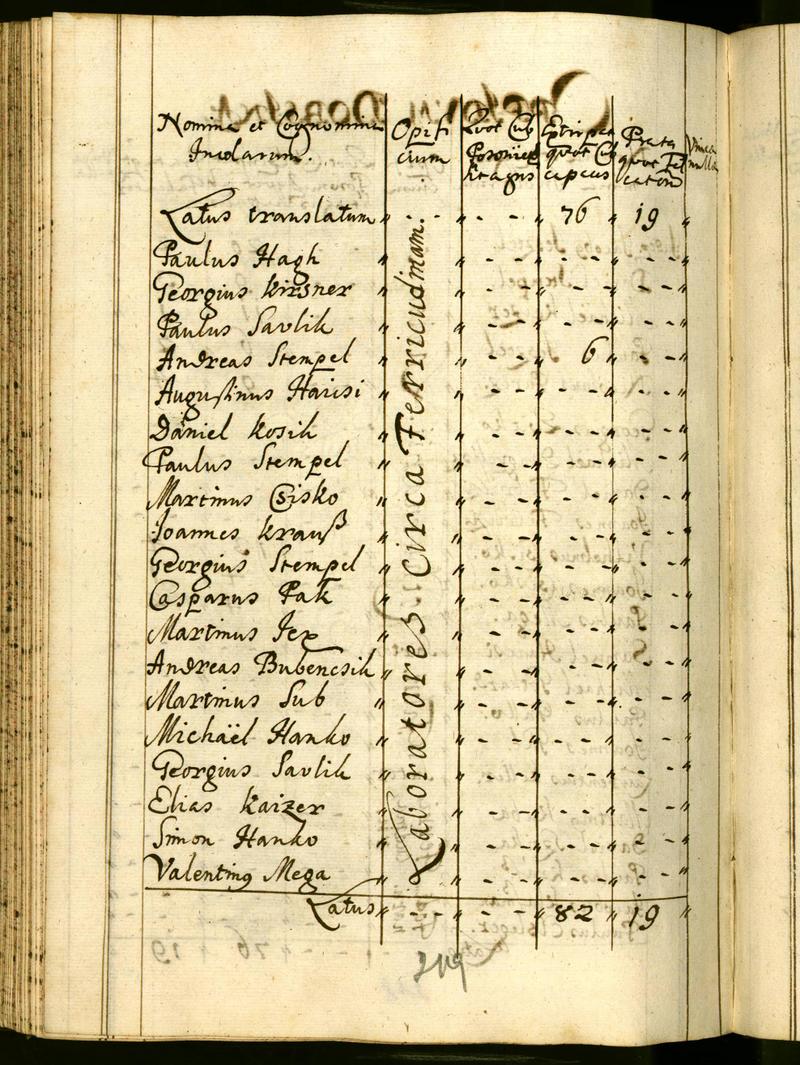 Nomina et Cognomina
Incolarum.
Opifi
cium
Quot Cub
Posonien
Extirpata
quot Cub
capiens
Prata
quot Fal
catorum
Vinea
nulla
Latus translatum „ - - „ - - „ 76 „ 19 „
Paulus Hagh
Georgius Kirsner
Paulus Savlik
Andreas Stempel 6
Augustinus Harisi
Daniel Kosik
Paulus Stempel
Martinus Csisko
Joannes Krauß
Georgius Stempel
Casparus Pak
Martinus Jex
Andreas Bubencsik
Martinus Sub
Michaël Hanko
Georgius Savlik
Elias Kaizer
Simon Hanko
Valentinus Mega
Laboratores Circa Ferricudinam.
Latus „ - - „ - - „ 82 „ 19 „
219